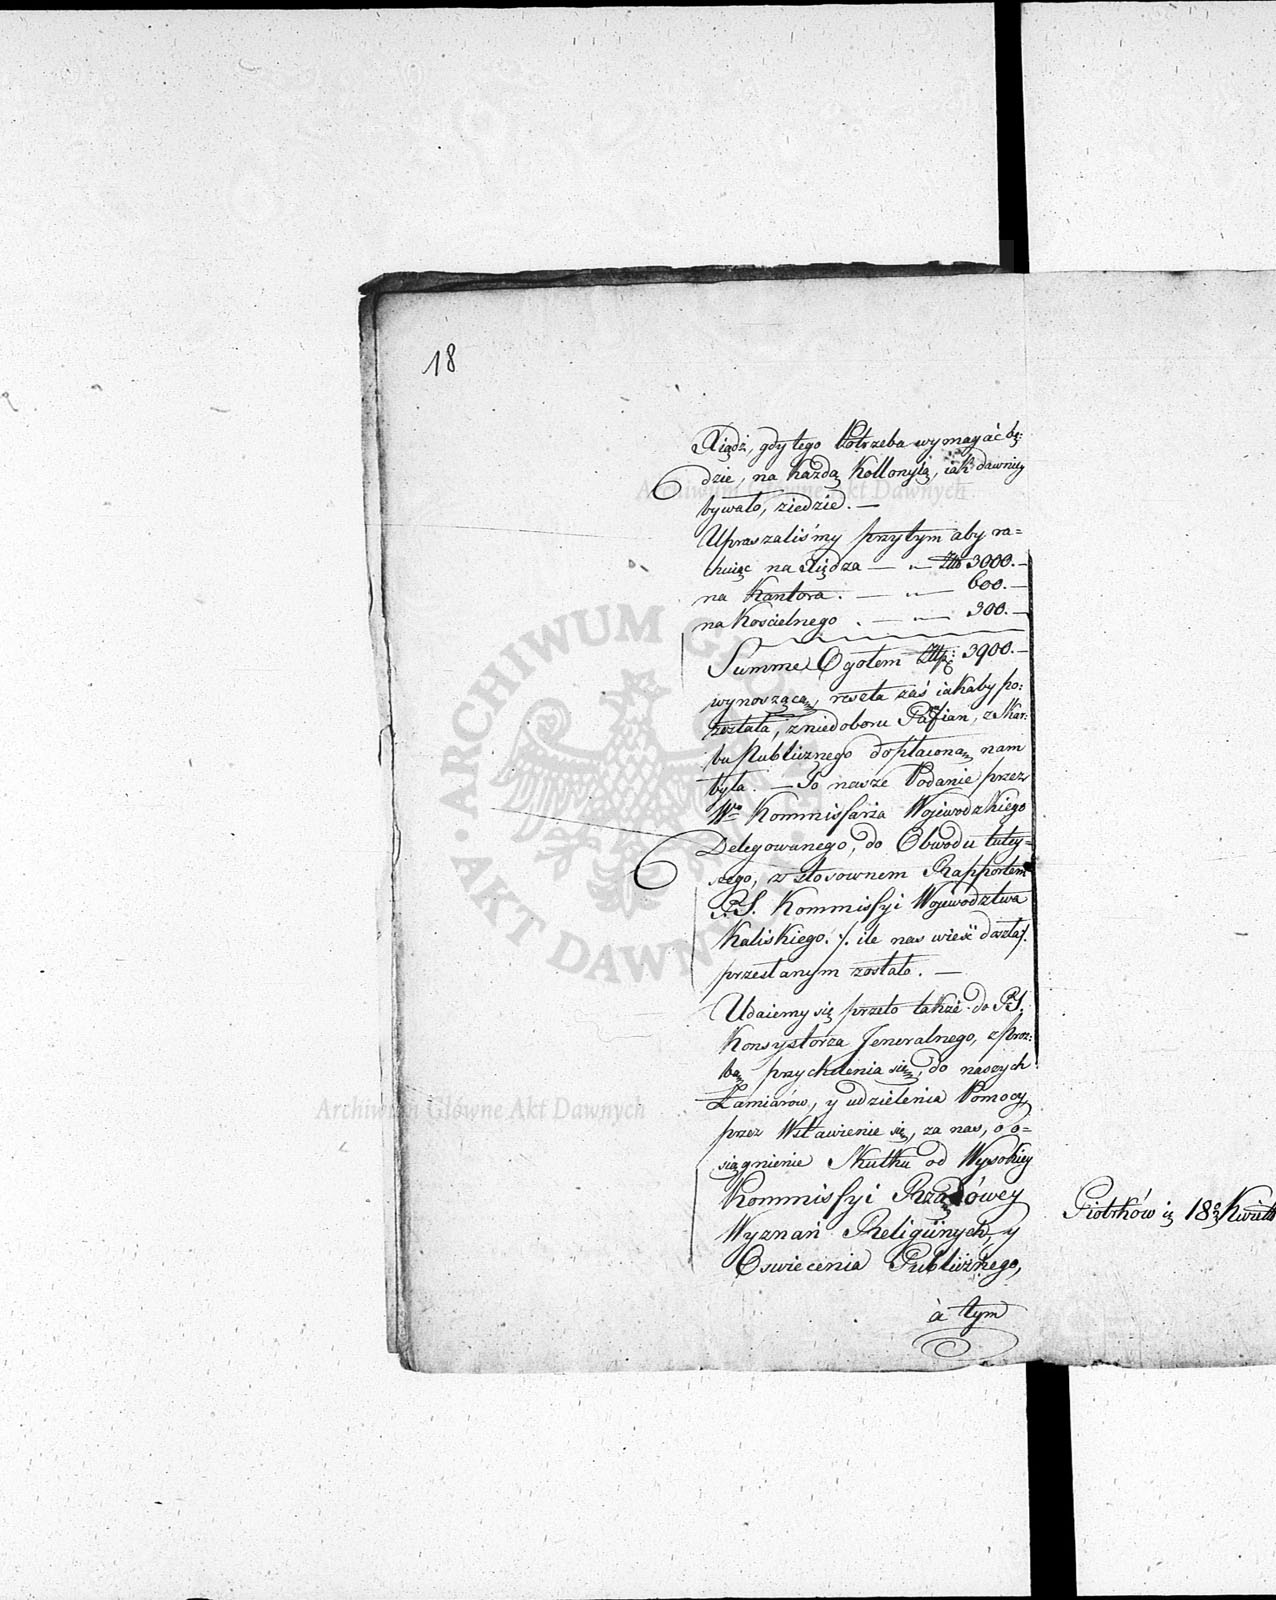 18
Xiądz, gdy tego Potrzeba wymagać bę:
dzie, na każdą Kollonyią, iak dawniey
bywało, ziedzie. —
Upraszaliśmy przytym aby ra=
chuiąc na Xiędza — „ — Złp 3000. —
na Kantora. — „ — 600. —
na Kościelnego . — „ — 300. —
Summe Ogołem Złp: 3900. —
wynoszącą, reszta zaś iakaby po:
zostala, z niedoboru Parafian, z Skar:
bu Publicznego dopłaconą nam
była. — To nasze Podanie przez
Wgo Kommissarza Wojewodzkiego
Delegowanego, do Obwodu tutey=
szego, w stosownem Rapportem
P. S. Kommissyi Wojewodztwa
Kaliskiego /: ile nas wieść doszła :/
przesłanym zostało. —
Udaiemy się przeto także do P. S.
Konsystorza Jeneralnego, z proz:
bą przychilenia się, do naszych
Zamiarów, y udzielenia Pomocy
przez Wstawienie się, za nas, o o=
siągnienie Skutku od Wysokiey
Kommissyi Rządówey
Wyznań Religiinych, y
Oswiecenia Publicznego,
à tym
Piotrków
Archiwum Główne Akt Dawnych
Archiwum Główne Akt Dawnych
ARCHIWUM GŁÓWNE AKT DAWNYCH